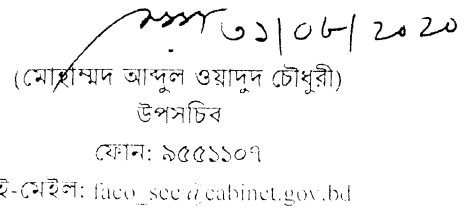 ৩১/০৮/২০২০
(মোহাম্মদ আব্দুল ওয়াদুদ চৌধুরী)
উপসচিব
ফোন: ৯৫৫১১০৭
ই-মেইল: faco_sec@cabinet.gov.bd